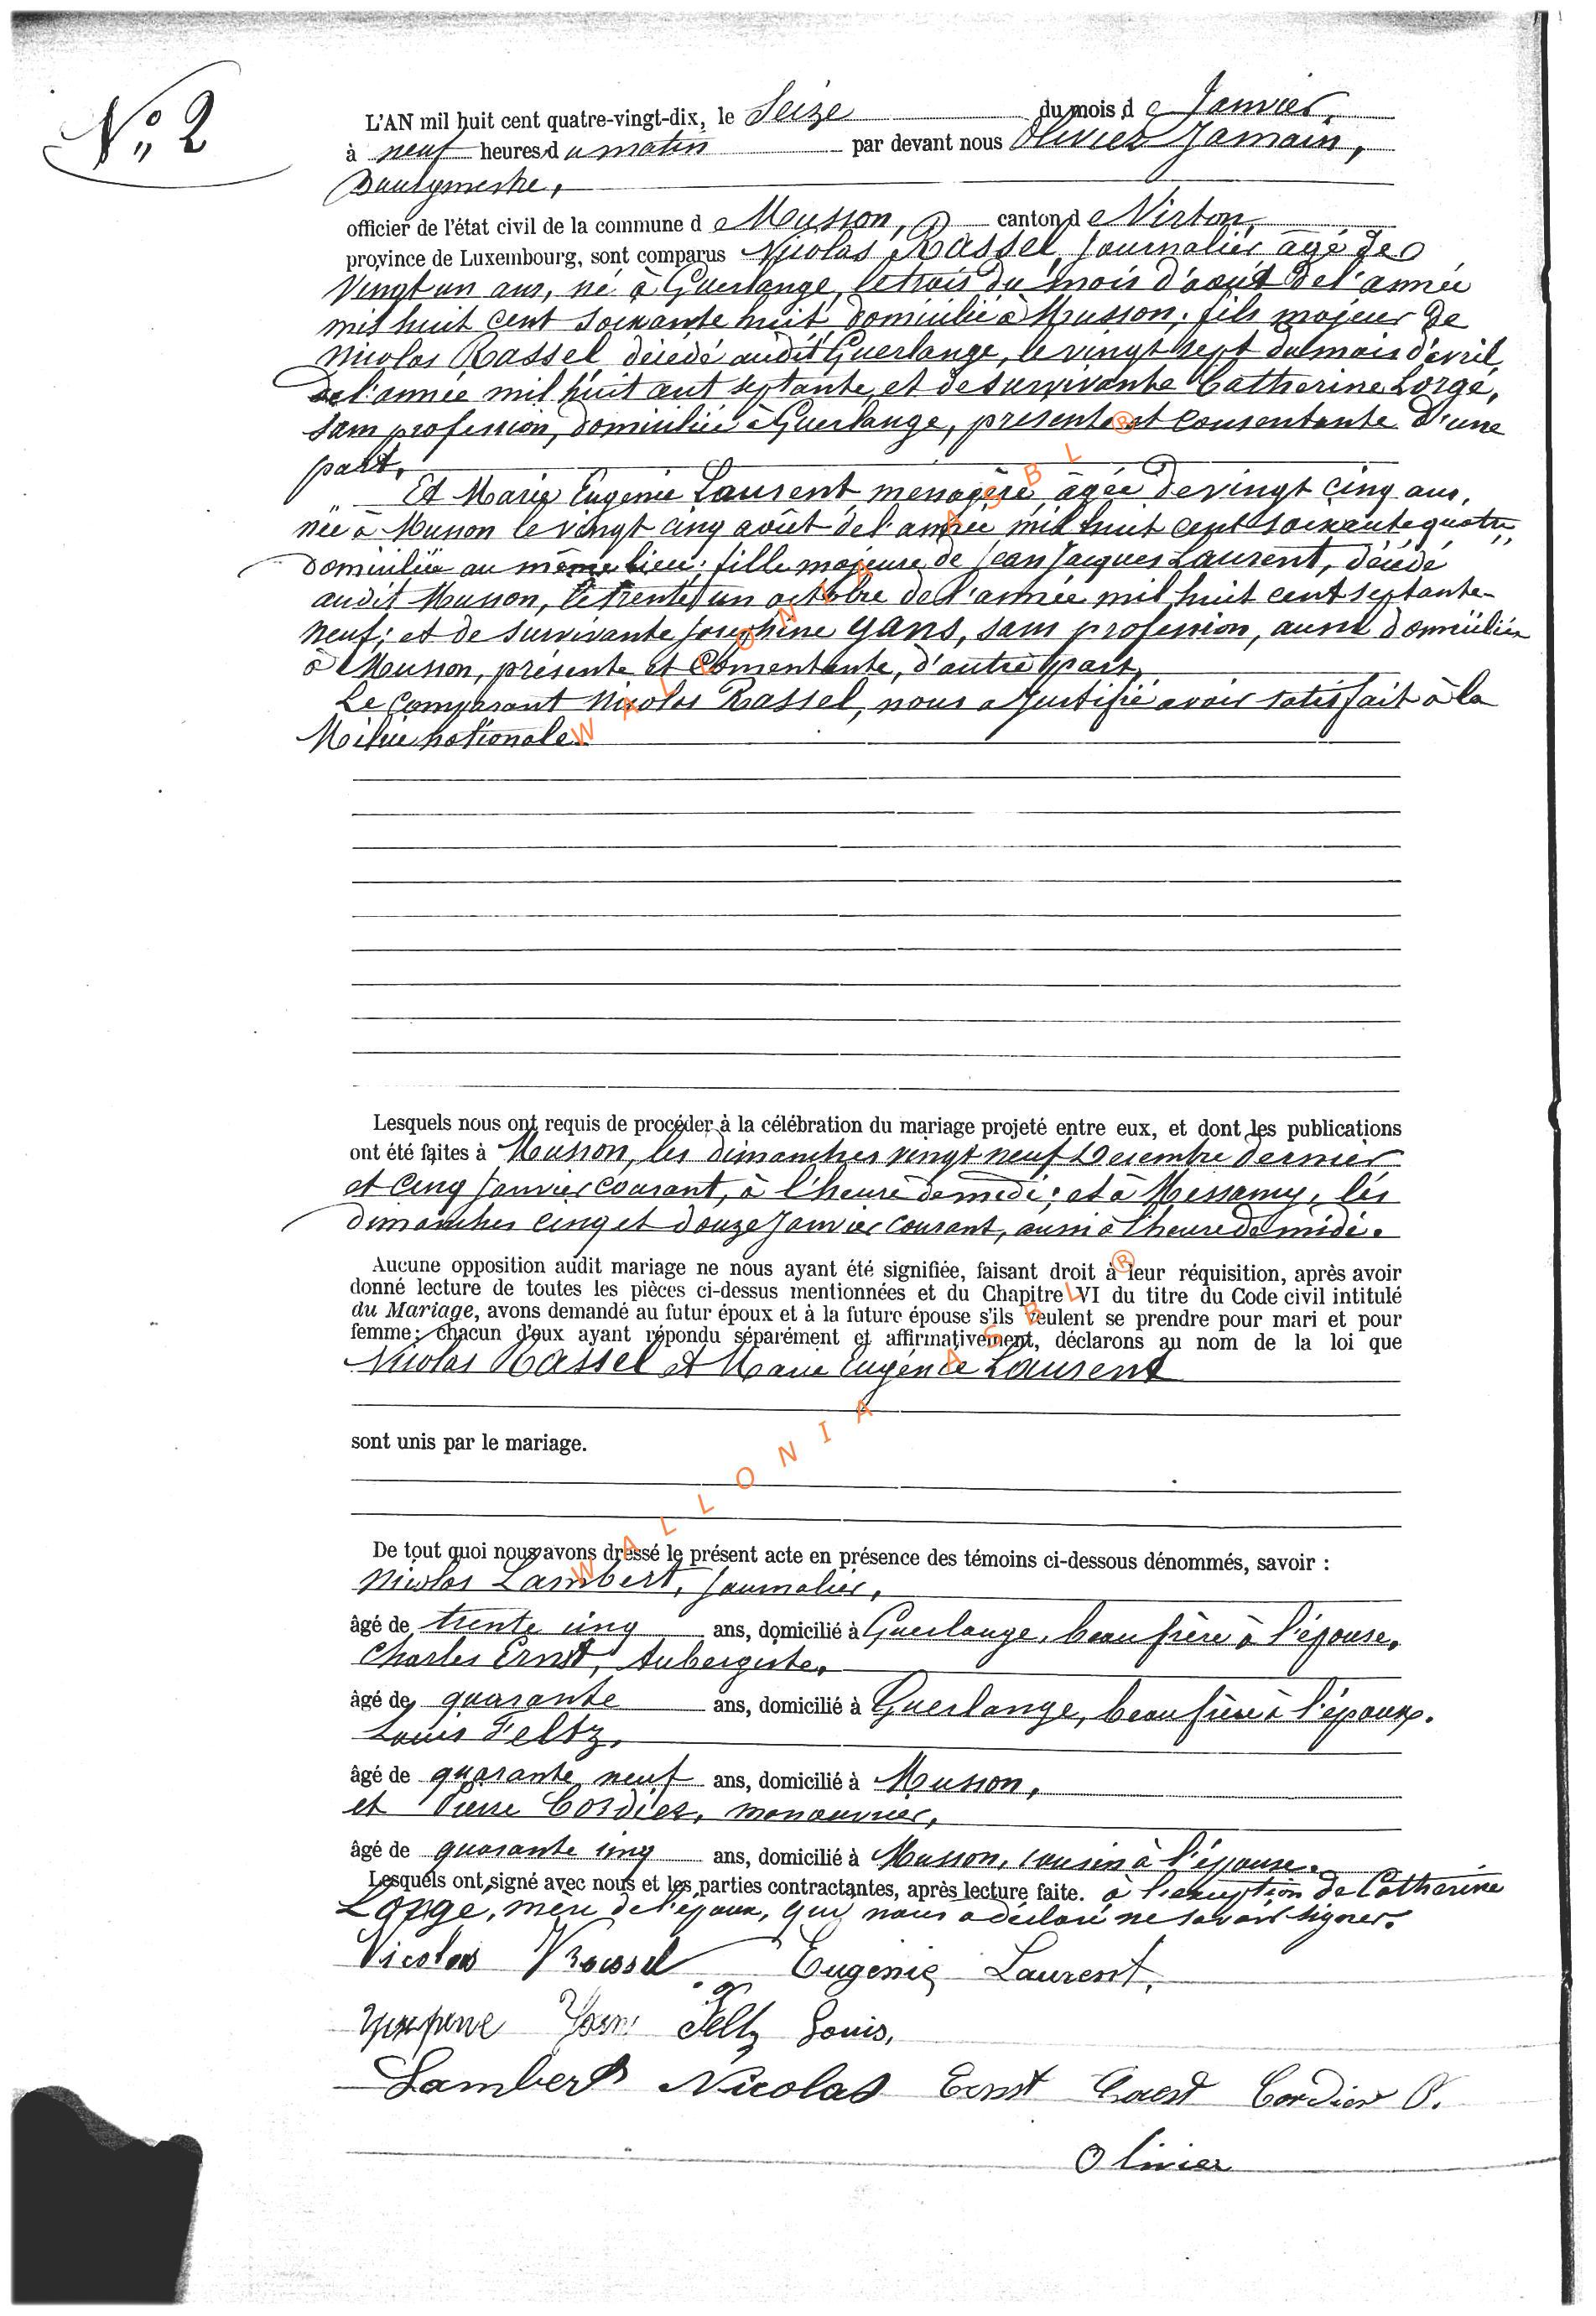 N° 2
L'AN mil huit cent quatre-vingt-dix, le Seize du mois de Janvier,
à neuf heures du matin par devant nous Olivier Jamain,
Bourgmestre,
officier de l'état civil de la commune de Musson, canton de Virton,
province de Luxembourg, sont comparus Nicolas Rassel, journalier, âgé de
vingt un ans, né à Guerlange, le trois du mois d'août de l'année
mil huit cent soixante huit, domicilié à Musson; fils majeur de
Nicolas Rassel décédé audit Guerlange, le vingt sept du mois d'avril
de l'année mil huit cent septante, et de survivante Catherine Lorgé,
sans profession, domiciliée à Guerlange, présente et consentante d'une
part.
Et Marie Eugénie Laurent, menagère, âgée de vingt cinq ans,
née à Musson le vingt cinq août de l'année mil huit cent soixante quatre,
domiciliée au même lieu; fille majeure de Jean Jacques Laurent, décédé
audit Musson, le trente un octobre de l'année mil huit cent septante
neuf; et de survivante Josephine Yans, sans profession, aussi domiciliée
à Musson, présente et consentante, d'autre part.
Le comparant Nicolas Rassel, nous a justifié avoir satisfait à la
Milice nationale.
Lesquels nous ont requis de procéder à la célébration du mariage projeté entre eux, et dont les publications
ont été faites à Musson, les dimanches vingt neuf Décembre dernier
et cinq Janvier courant, à l'heure de midi; et à Messancy, les
dimanches cinq et douze Janvier courant, aussi à l'heure de midi.
Aucune opposition audit mariage ne nous ayant été signifiée, faisant droit à leur réquisition, après avoir
donné lecture de toutes les pièces ci-dessus mentionnées et du Chapitre VI du titre du Code civil intitulé
du Mariage, avons demandé au futur époux et à la future épouse s'ils veulent se prendre pour mari et pour
femme; chacun d'eux ayant répondu séparément et affirmativement, déclarons au nom de la loi que
Nicolas Rassel et Marie Eugénie Laurent
sont unis par le mariage.
De tout quoi nous avons dressé le présent acte en présence des témoins ci-dessous dénommés, savoir :
Nicolas Lambert, journalier,
âgé de trente cinq ans, domicilié à Guerlange, beau frère à l'épouse,
Charles Ernst, Aubergiste,
âgé de quarante ans, domicilié à Guerlange, beau frère à l'époux.
Louis Feltz,
âgé de quarante neuf ans, domicilié à Musson,
et Pierre Cordier, manouvrier,
âgé de quarante cinq ans, domicilié à Musson, cousin à l'épouse.
Lesquels ont signé avec nous et les parties contractantes, après lecture faite. à l'exception de Catherine
Lorgé, mère de l'époux, qui nous a déclaré ne savoir signer.
Nicolas Rassel Eugénie Laurent,
Yans Feltz Louis,
Lambert Nicolas Ernst Cordier P.
Olivier
WALLONIA ASBL ®
WALLONIA ASBL ®